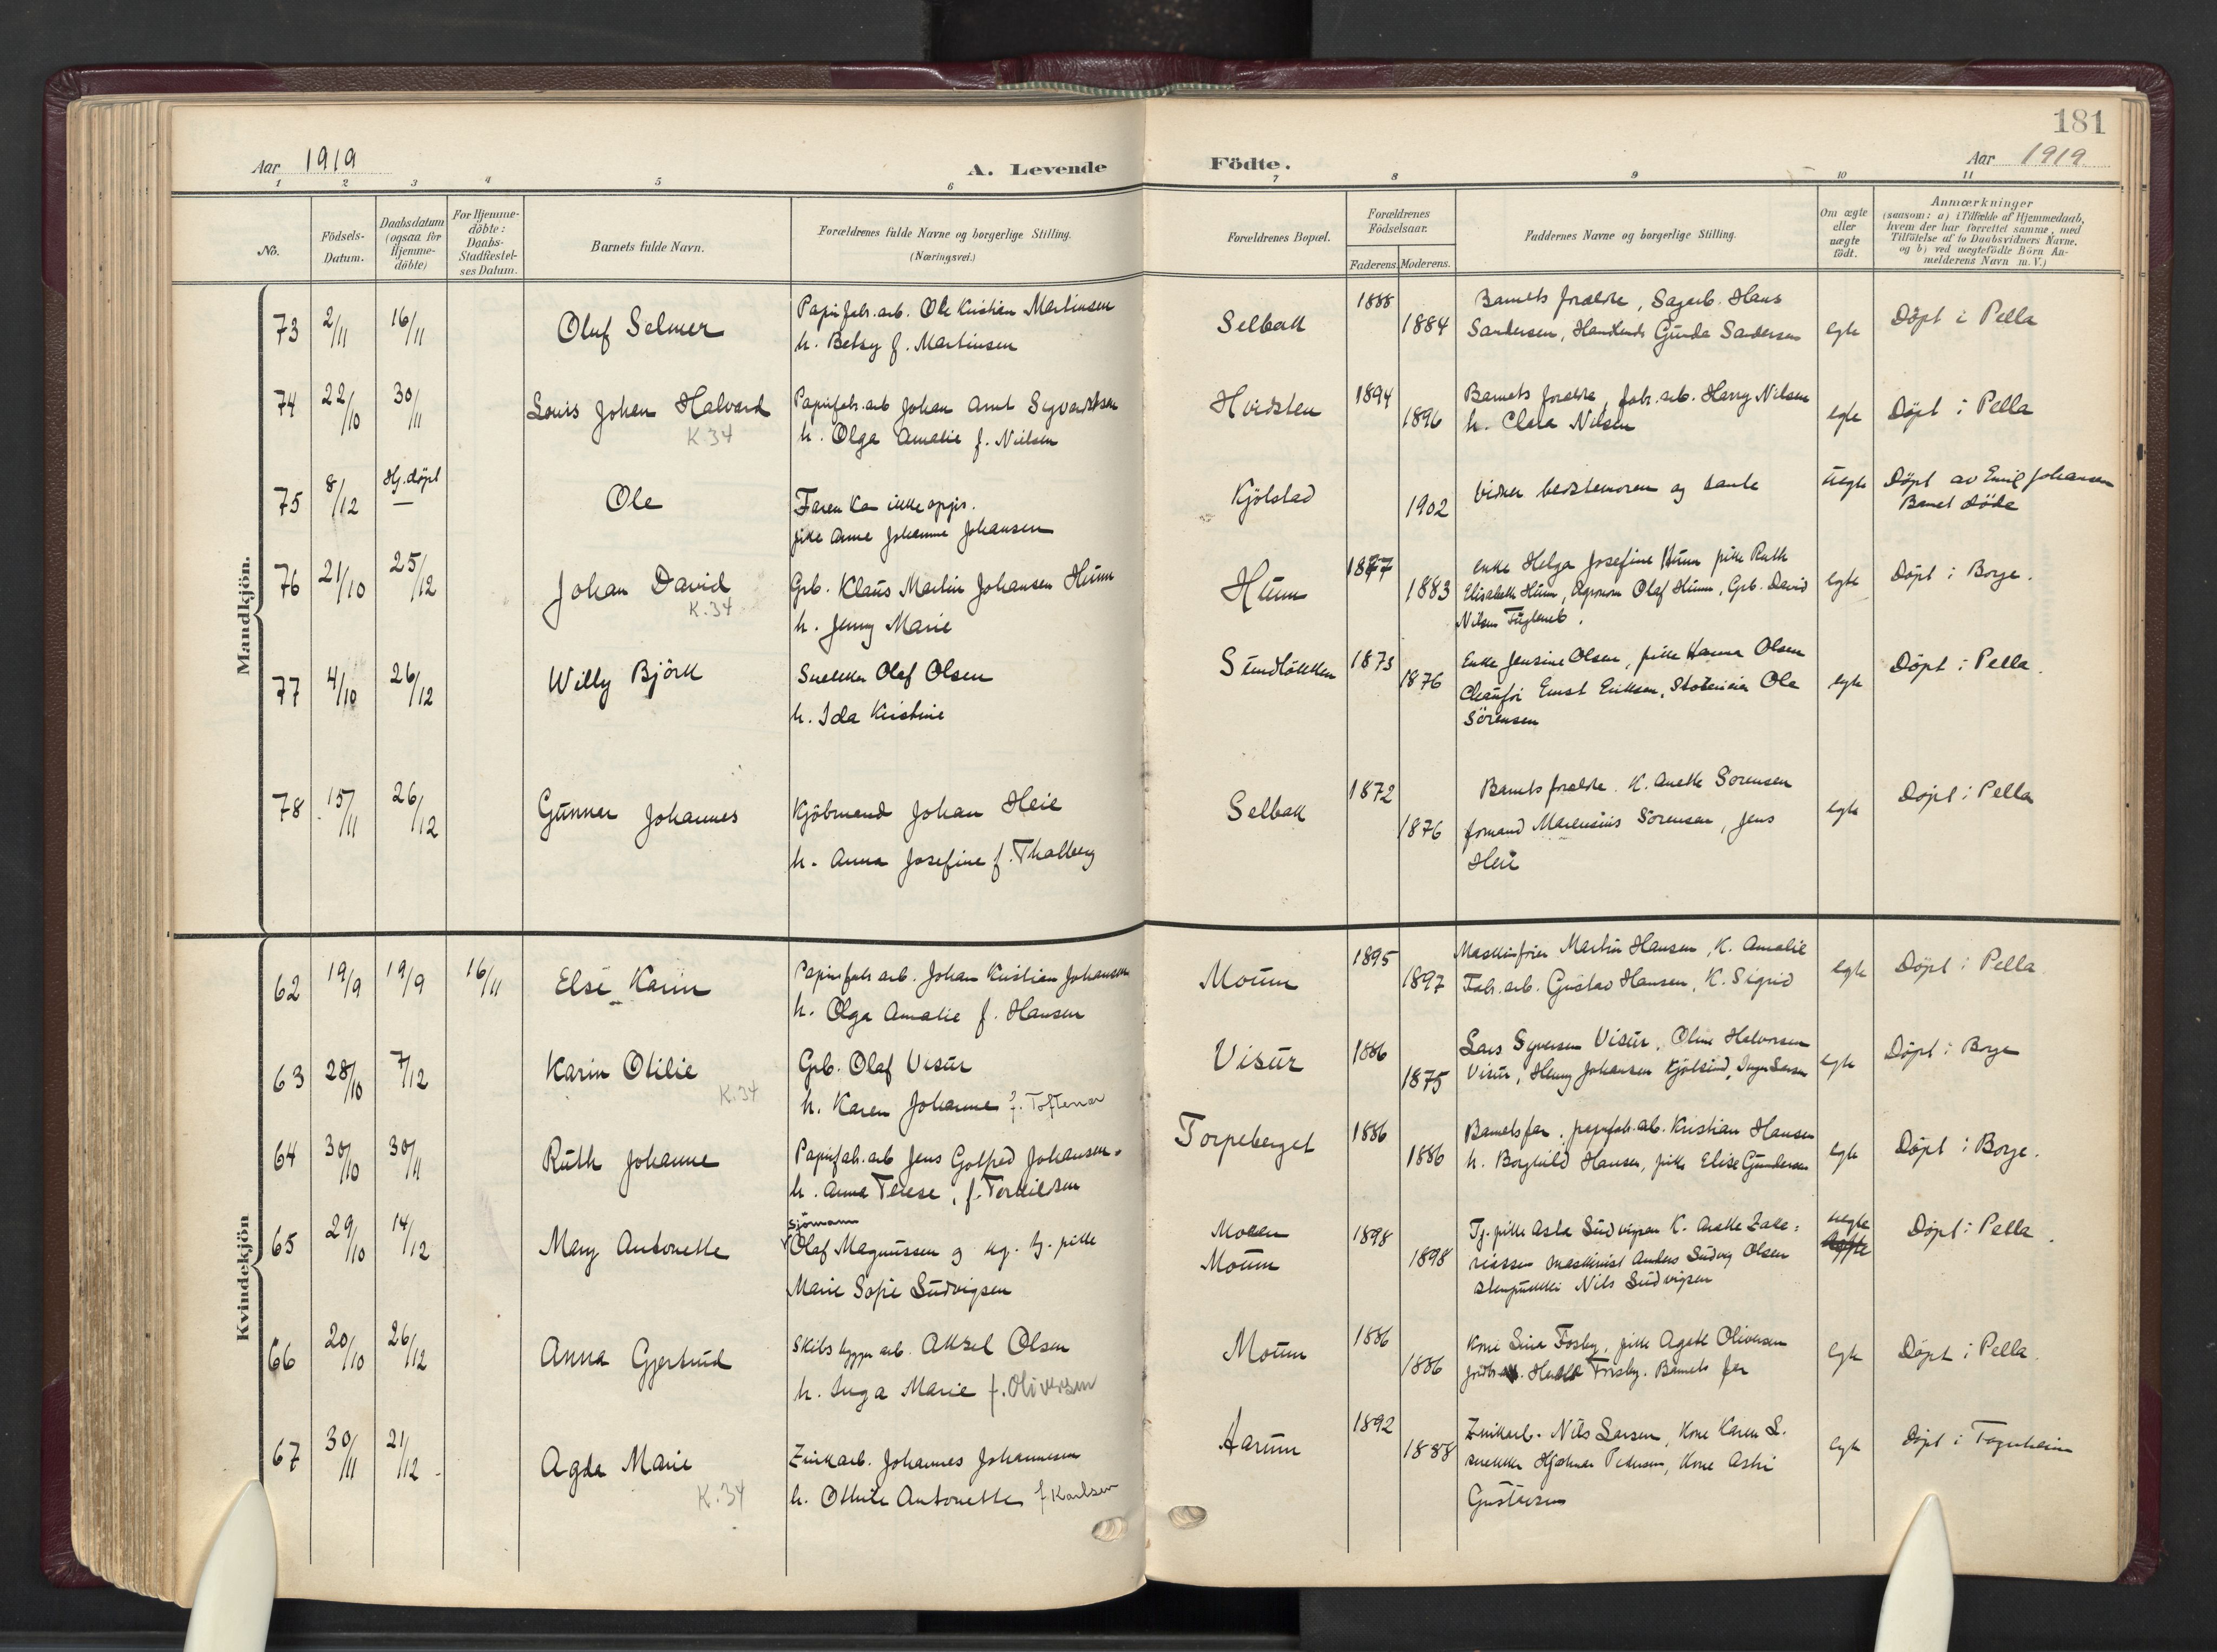 181
Aar 1919
A. Levende
Födte.
Aar 1919
1 2 3 4 5 6 7 8 9 10 11
No.
Födsels-
Datum.
Daabsdatum
(ogsaa for
Hjemme-
döbte)
For Hjemme-
döbte:
Daabs-
Stadfæstel-
ses Datum.
Barnets fulde Navn.
Forældrenes fulde Navne og borgerlige Stilling.
(Næringsvei.)
Forældrenes Bopæl.
Forældrenes
Födselsaar.
Faderens. Moderens.
Faddernes Navne og borgerlige Stilling.
Om ægte
eller
uægte
födt.
Anmærkninger
(saasom: a) i Tilfælde af Hjemmedaab,
hvem der har forrettet samme, med
Tilföielse af to Daabsvidners Navne,
og b) ved uægtefödte Börn An-
melderens Navn m. V.)
Mandkjön.
73 2/11 16/11 Oluf Selmer
Papirfabr. arb. Ole Kristian Martinsen
h. Betsy f. Martinsen
Selbak 1888 1884
Barnets forældre, Sagarb. Hans
Sandersen, Gunda Sandersen
egte Döpt i Pella
74 22/10 30/11 Louis Johan Halvard
K.34
Papirfabr. arb Johan Arnt Syvertsen
h. Olga Amalie f. Nielsen
Hvidsten 1894 1896
Barnets forældre, fabr. arb. Harry Nilsen
h. Clara Nilsen
egte Döpt i Pella
75 8/12 Hj. döpt
—
Ole
Faren kan ikke opgis.
pike Anne Johanne Johansen
Kjölstad 1902
Vidner bedstemoren og tante
uegte Döpt av Emil Johansen
Barnet döde
76 21/10 25/12 Johan David
K.34
Grb. Klaus Martin Johansen Hunn
h. Jenny Marie
Hunn 1877 1883
enke Helga Josefine Hunn pike Ruth
Elisabeth Hunn, Agronom Olaf Hunn, Grb. David
Nilsen
egte Döpt i Borge.
77 4/10 26/12 Willy Björk
Snekker Olaf Olsen
h. Ida Kristine
Sundlökken 1873 1876
Enke Jensine Olsen, pike Hanna Olsen
Chauför Ernst Eriksen, Ole
Sörensen
egte Döpt i Pella.
78 15/11 26/12 Gunnar Johannes
Kjöbmand Johan Heie
h. Anna Josefine f. Thalberg
Selbak 1872 1876
Barnets forældre. K. Anette Sorensen
formand Marensius Sörensen, Jens
Heie
egte Döpt i Pella
Kvindekjön
62 19/9 19/9 16/11 Else Karin
Papirfabr arb. Johan Kristian Johansen
h. Olga Amalie f. Hansen
Moum 1895 1897
Maskinförer Martin Hansen, K. Amalie
Fabr. arb. Gustav Hansen, K. Sigrid
egte Döpt i Pella
63 28/10 7/12 Karin Otilie
K.34
Grb. Olaf Visur
h. Karen Johanne f. Toftenar
Visur 1886 1875
Lars Syversen Visur, Oline Halvorsen
Visur, Henny Johansen Kjölsund, Inga Larsen
egte Döpt i Borge
64 30/10 30/11 Ruth Johanne
Papirfab. arb Jens Gotfred Johansen.
h. Anna Therese, f. Torkildsen
Torpeberget 1886 1886
Barnets far, papirfab. arb. Kristian Hansen
h. Borghild Hansen, pike Elise Gundersen
egte Döpt i Borge.
65 29/10 14/12 Mary Antonette
sjömann
Olaf Magnussen og ug. tj. pike
Marie Sofie Ludvigsen
Moum
Moum
1898 1898
Tj. pike Asta Ludvigsen K. Anette Zaka-
riassen maskinist Anders Ludvig Olsen
stenpukker Nils Ludvigsen
uegte
Döpt i Pella.
66 20/10 26/12 Anna Gjertrud
Skibsbygger arb. Aksel Olsen
h. Inga Marie f. Oliversen
Moum 1886 1886
Kone Lina Fosby, pike Agate Oliversen
Fosby. Barnets far
egte Döpt i Pella.
67 30/11 21/12 Agda Marie
K.34
Zinkarb. Johannes Johannesen
h. Otthilie Antonette f. Karlsen
Aarum 1892 1888
Zinkarb. Nils Larsen, Kone Karen L.
snekker Hjalmar Pedersen, Kone Astri
Gustavsen
egte Döpt i Fagerheim